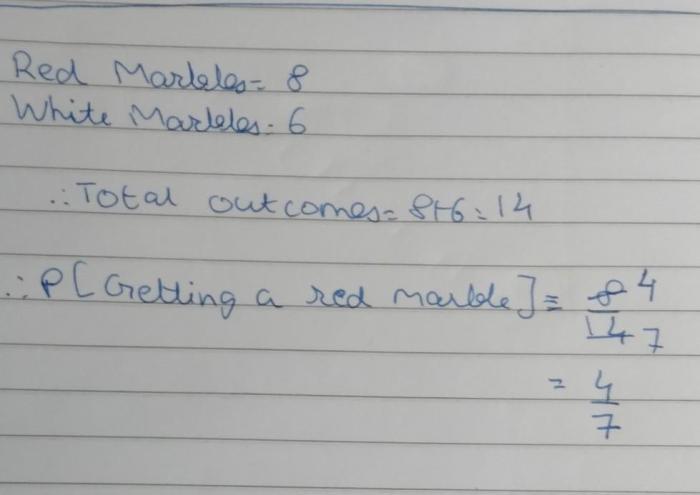 Red Marbles = 8
White Marbles = 6
∴ Total outcomes = 8+6 = 14
∴ P[Getting a red marble] = 8/14 4/7
= 4/7